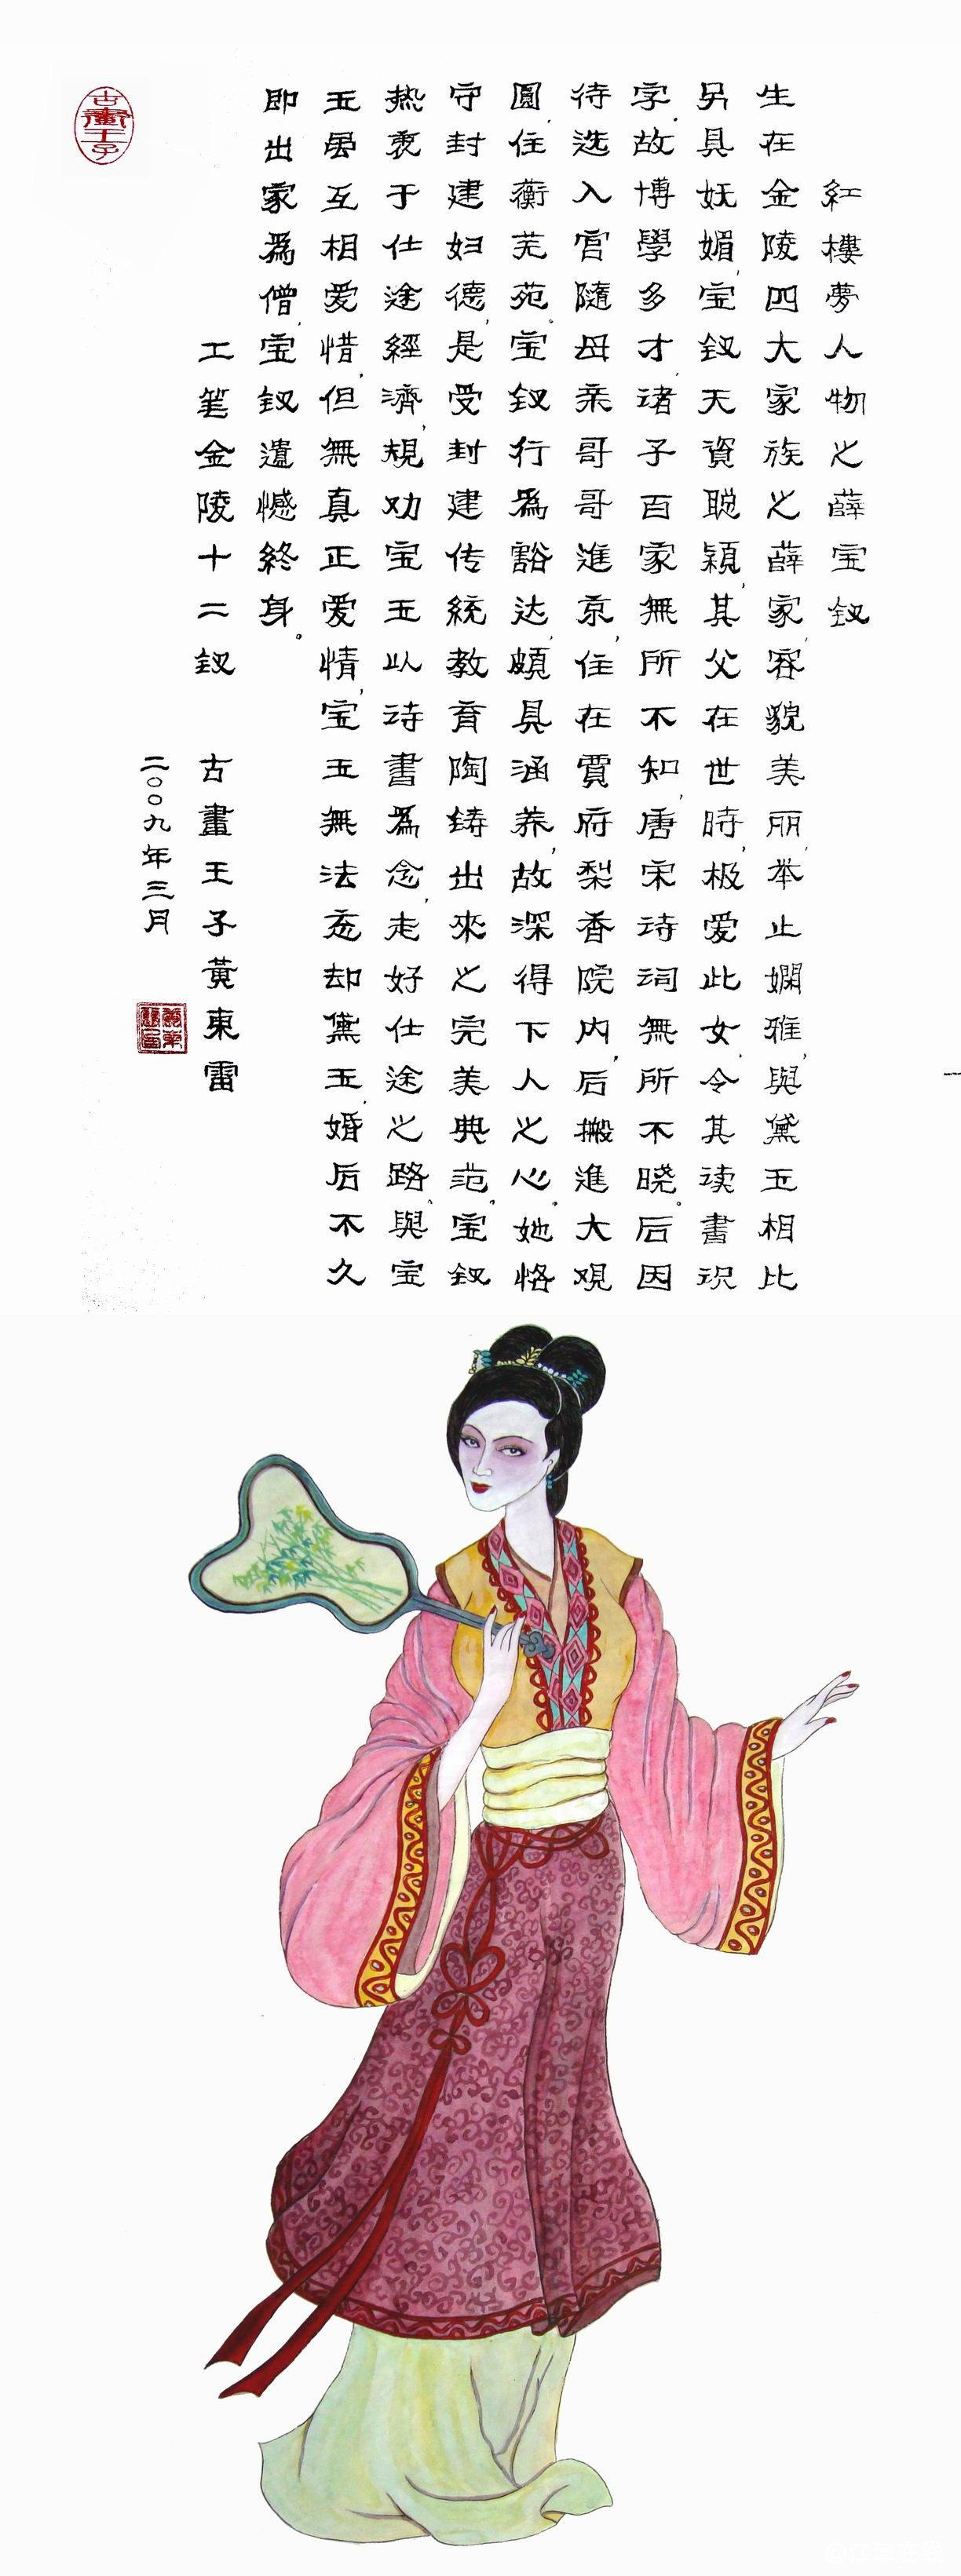 紅樓夢人物之薛宝釵
生在金陵四大家族之薛家,容貌美丽,举止嫻雅,與黛玉相比
另具妩媚,宝釵天資聪穎,其父在世時,极爱此女,令其读書识
字,故博學多才,诸子百家無所不知,唐宋诗词無所不晓。后因
待选入宮隨母亲哥哥進京,住在賈府梨香院内,后搬進大观
圓,住蘅芜苑。宝釵行為豁达,頗具涵养,故深得下人之心。她恪
守封建妇德,是受封建传統教育陶铸出來之完美典范。宝釵
热衷于仕途經濟,規劝宝玉以诗書為念,走好仕途之路。與宝
玉虽互相爱惜,但無真正爱情,宝玉無法忘却黛玉,婚后不久
即出家為僧,宝釵遺憾終身。
工笔金陵十二釵 古畫王子黃東雷
二〇〇九年三月
古畫王子